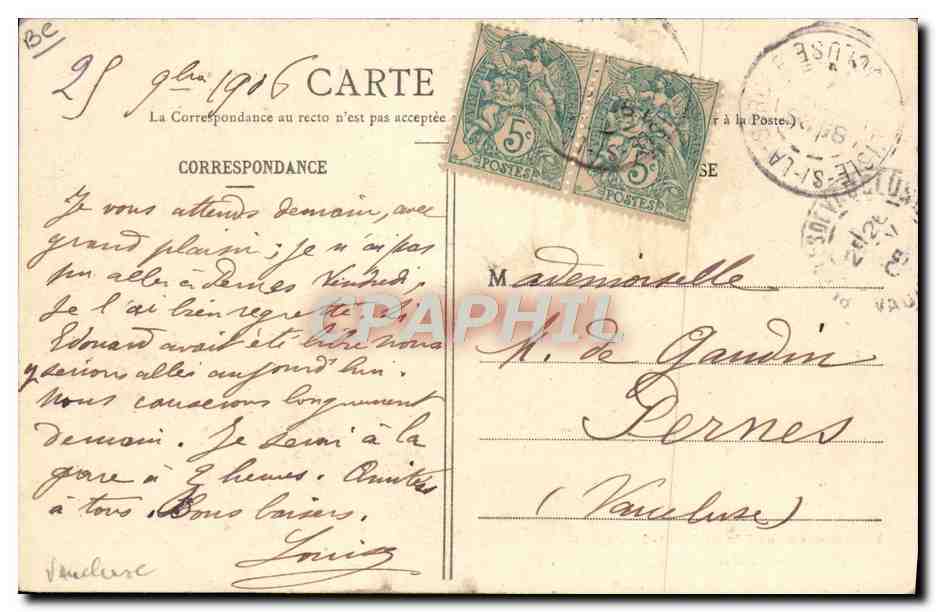 BC
25 9bre 1906
CARTE
La Correspondance au recto n'est pas acceptée
r à la Poste.)
CORRESPONDANCE
SE
5c
POSTES
5c
POSTES
Je vous attends demain, avec
grand plaisir; je n'ai pas
pu aller à Pernes Vendredi,
Je l'ai bien regretté. Si
Edouard avait été libre nous
y serions allés aujourd'hui.
Nous causerons longuement
demain. Je serai à la
gare à 2 heures. Amitiés
à tous. Bons baisers.
Louise
Mademoiselle
M. de Gaudin
Pernes
(Vaucluse)
CPAPHIL
L'ISLE-S/-LA-SORGUE
VAUCLUSE
VAUCLUSE
Vaucluse